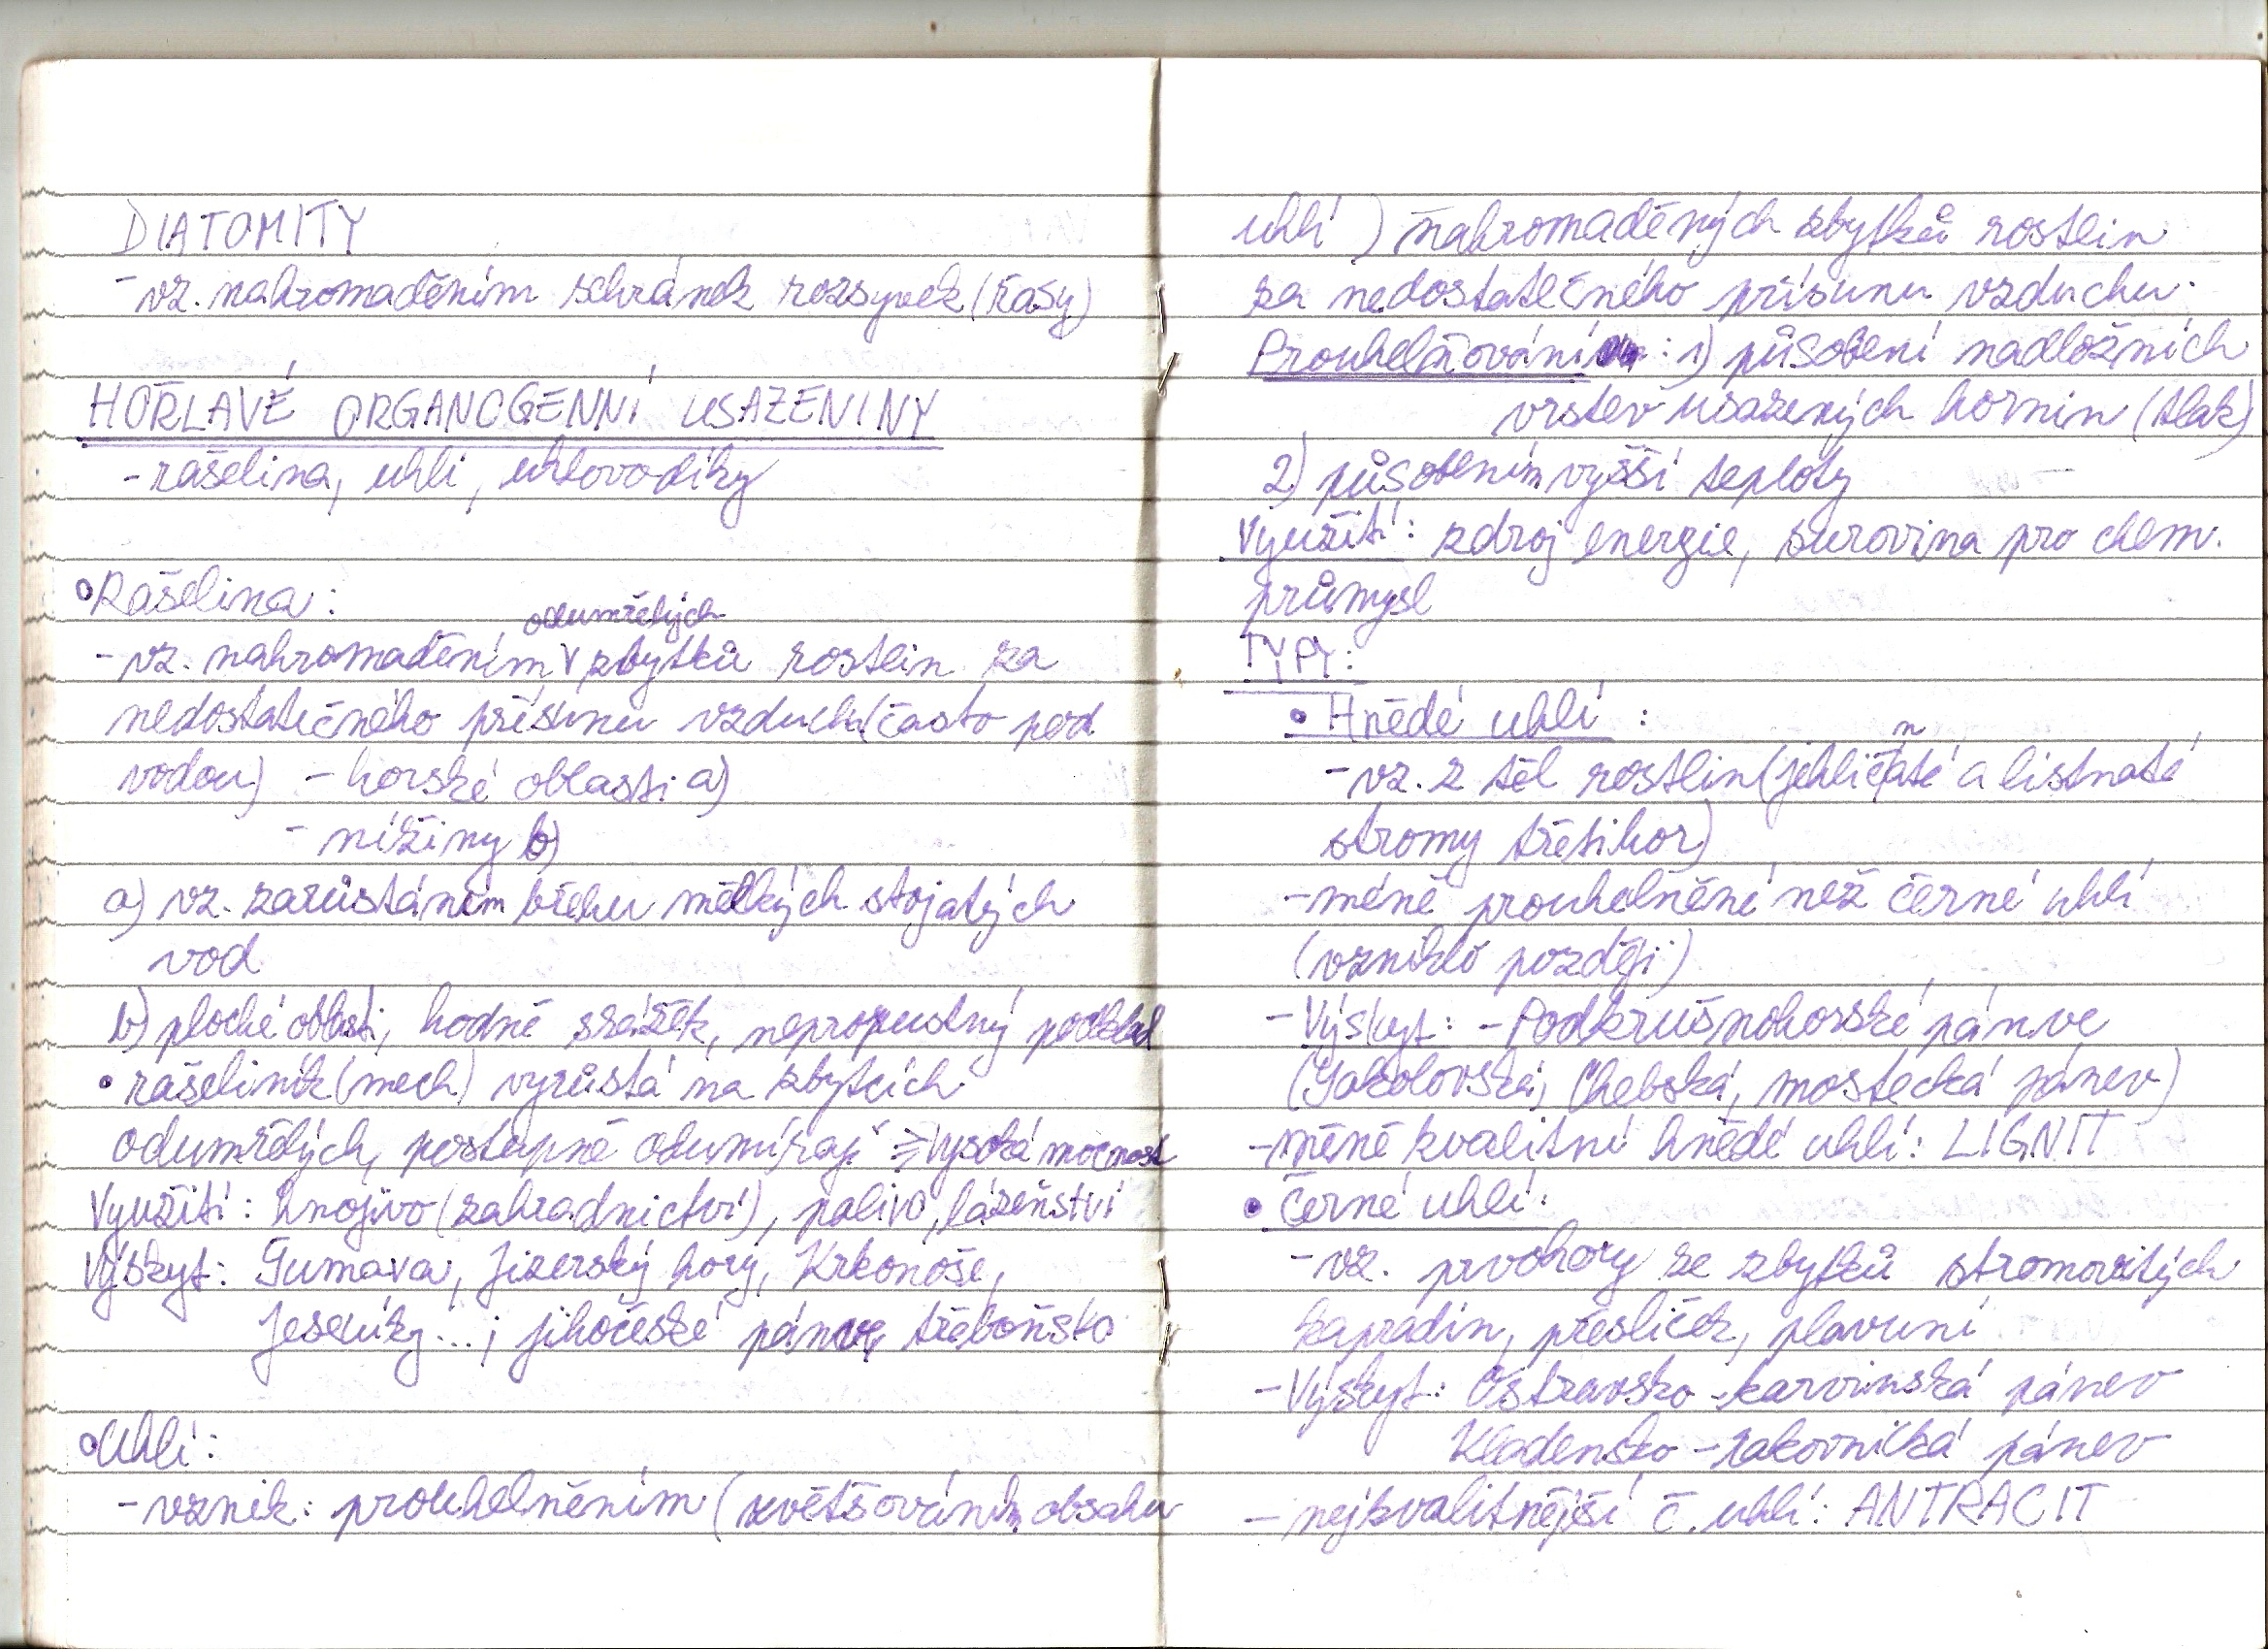 DIATOMITY
- vz. nahromaděním schránek rozsivek (řasy)
HOŘLAVÉ ORGANOGENNÍ USAZENINY
- rašelina, uhlí, uhlovodíky
• Rašelina:
- vz. nahromaděním odumřelých zbytků rostlin za
nedostatečného přísunu vzduchu (často pod
vodou) - horské oblasti a)
- nížiny b)
a) vz. zarůstáním břehu mělkých stojatých
vod
b) ploché oblasti, hodně srážek, nepropustný podklad
• rašeliník (mech) vyrůstá na zbytcích
odumřelých, postupně odumírají => vysoká mocnost
Využití: hnojivo (zahradnictví), palivo, lázeňství
Výskyt: Šumava, Jizerský hory, Krkonoše,
Jeseníky...; jihočeské pánve, třeboňsko
• Uhlí:
- vznik: prouhelněním (zvětšováním obsahu
uhlí) nahromaděných zbytků rostlin
za nedostatečného přísunu vzduchu.
Prouhelňování: 1) působení nadložních
vrstev usazených hornin (tlak)
2) působením vyšší teploty
Využití: zdroj energie, surovina pro chem.
průmysl
TYPY:
• Hnědé uhlí:
- vz. z těl rostlin (jehličnaté a listnaté
stromy třetihor)
- méně prouhelněné než černé uhlí
(vzniklo později)
- Výskyt: - Podkrušnohorské pánve
(Sokolovská, Chebská, mostecká pánev)
- méně kvalitní hnědé uhlí: LIGNIT
• Černé uhlí:
- vz. prvohory ze zbytků stromovitých
kapradin, přesliček, plavuní
- Výskyt: Ostravsko-karvinská pánev
Kladensko - rakovnická pánev
- nejkvalitnější č. uhlí: ANTRACIT